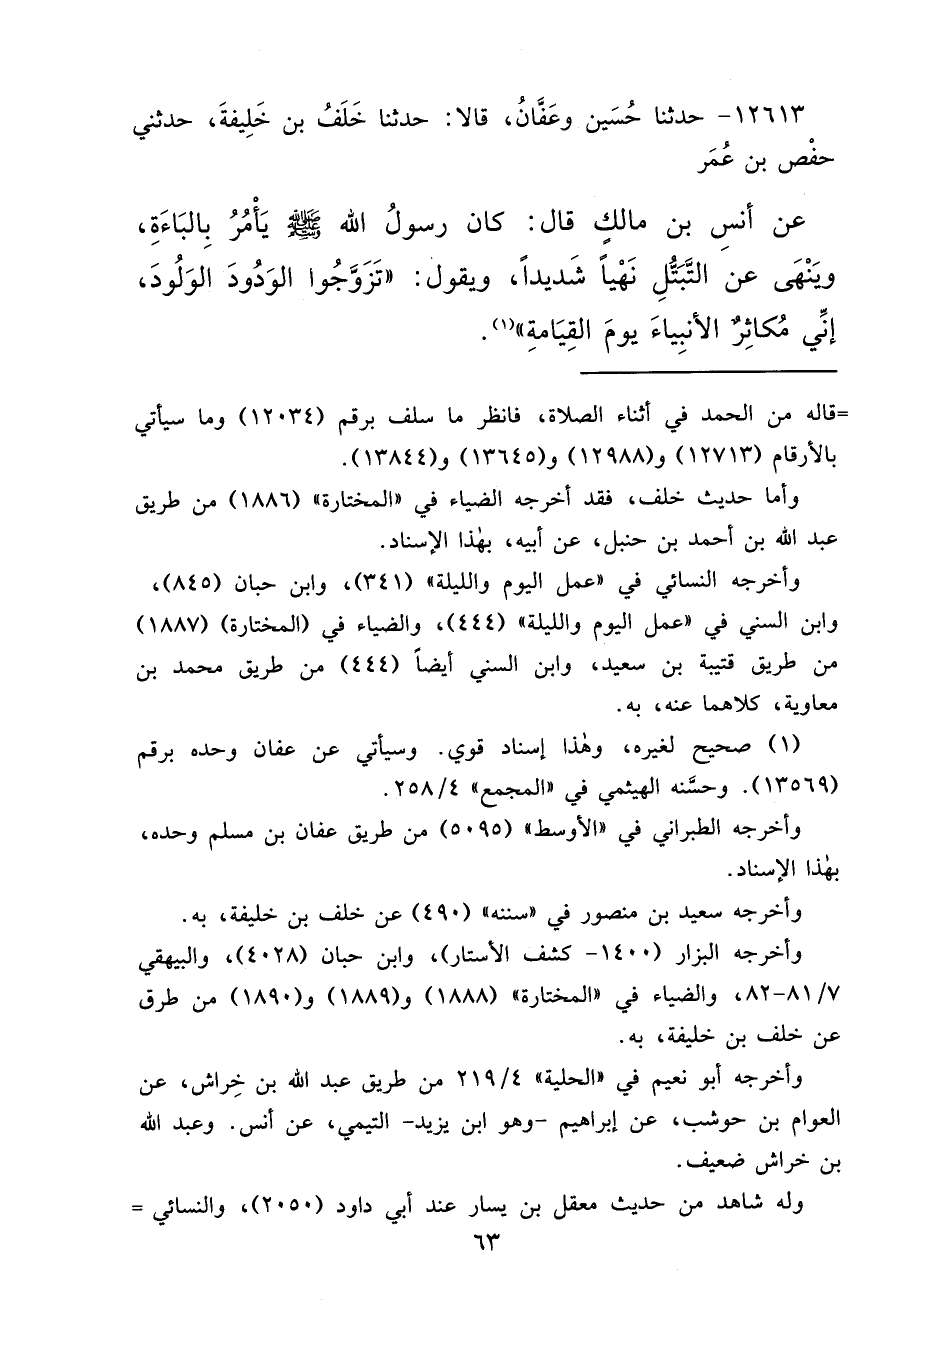 ١٢٦١٣- حدثنا حُسَين وعَفَّانُ، قالا: حدثنا خَلَفُ بن خَلِيفةَ، حدثني
حفْص بن عُمَر
عن أنسِ بن مالكٍ قال: كان رسولُ الله ﷺ يَأْمُرُ بِالبَاءَةِ،
ويَنْهَى عن التَّبَتُّلِ نَهْياً شَديداً، ويقول: «تَزَوَّجُوا الوَدُودَ الوَلُودَ،
إنِّي مُكاثِرٌ الأنبِياءَ يومَ القِيَامةِ»(١).
=قاله من الحمد في أثناء الصلاة، فانظر ما سلف برقم (١٢٠٣٤) وما سيأتي
بالأرقام (١٢٧١٣) و(١٢٩٨٨) و(١٣٦٤٥) و(١٣٨٤٤).
وأما حديث خلف، فقد أخرجه الضياء في «المختارة» (١٨٨٦) من طريق
عبد الله بن أحمد بن حنبل، عن أبيه، بهٰذا الإسناد.
وأخرجه النسائي في «عمل اليوم والليلة» (٣٤١)، وابن حبان (٨٤٥)،
وابن السني في «عمل اليوم والليلة» (٤٤٤)، والضياء في (المختارة) (١٨٨٧)
من طريق قتيبة بن سعيد، وابن السني أيضاً (٤٤٤) من طريق محمد بن
معاوية، كلاهما عنه، به.
(١) صحيح لغيره، وهٰذا إسناد قوي. وسيأتي عن عفان وحده برقم
(١٣٥٦٩). وحسَّنه الهيثمي في «المجمع» ٢٥٨/٤.
وأخرجه الطبراني في «الأوسط» (٥٠٩٥) من طريق عفان بن مسلم وحده،
بهٰذا الإسناد.
وأخرجه سعيد بن منصور في «سننه» (٤٩٠) عن خلف بن خليفة، به.
وأخرجه البزار (١٤٠٠- كشف الأستار)، وابن حبان (٤٠٢٨)، والبيهقي
٨١/٧-٨٢، والضياء في «المختارة» (١٨٨٨) و(١٨٨٩) و(١٨٩٠) من طرق
عن خلف بن خليفة، به.
وأخرجه أبو نعيم في «الحلية» ٢١٩/٤ من طريق عبد الله بن خِراش، عن
العوام بن حوشب، عن إبراهيم -وهو ابن يزيد- التيمي، عن أنس. وعبد الله
بن خراش ضعيف.
وله شاهد من حديث معقل بن يسار عند أبي داود (٢٠٥٠)، والنسائي =
٦٣